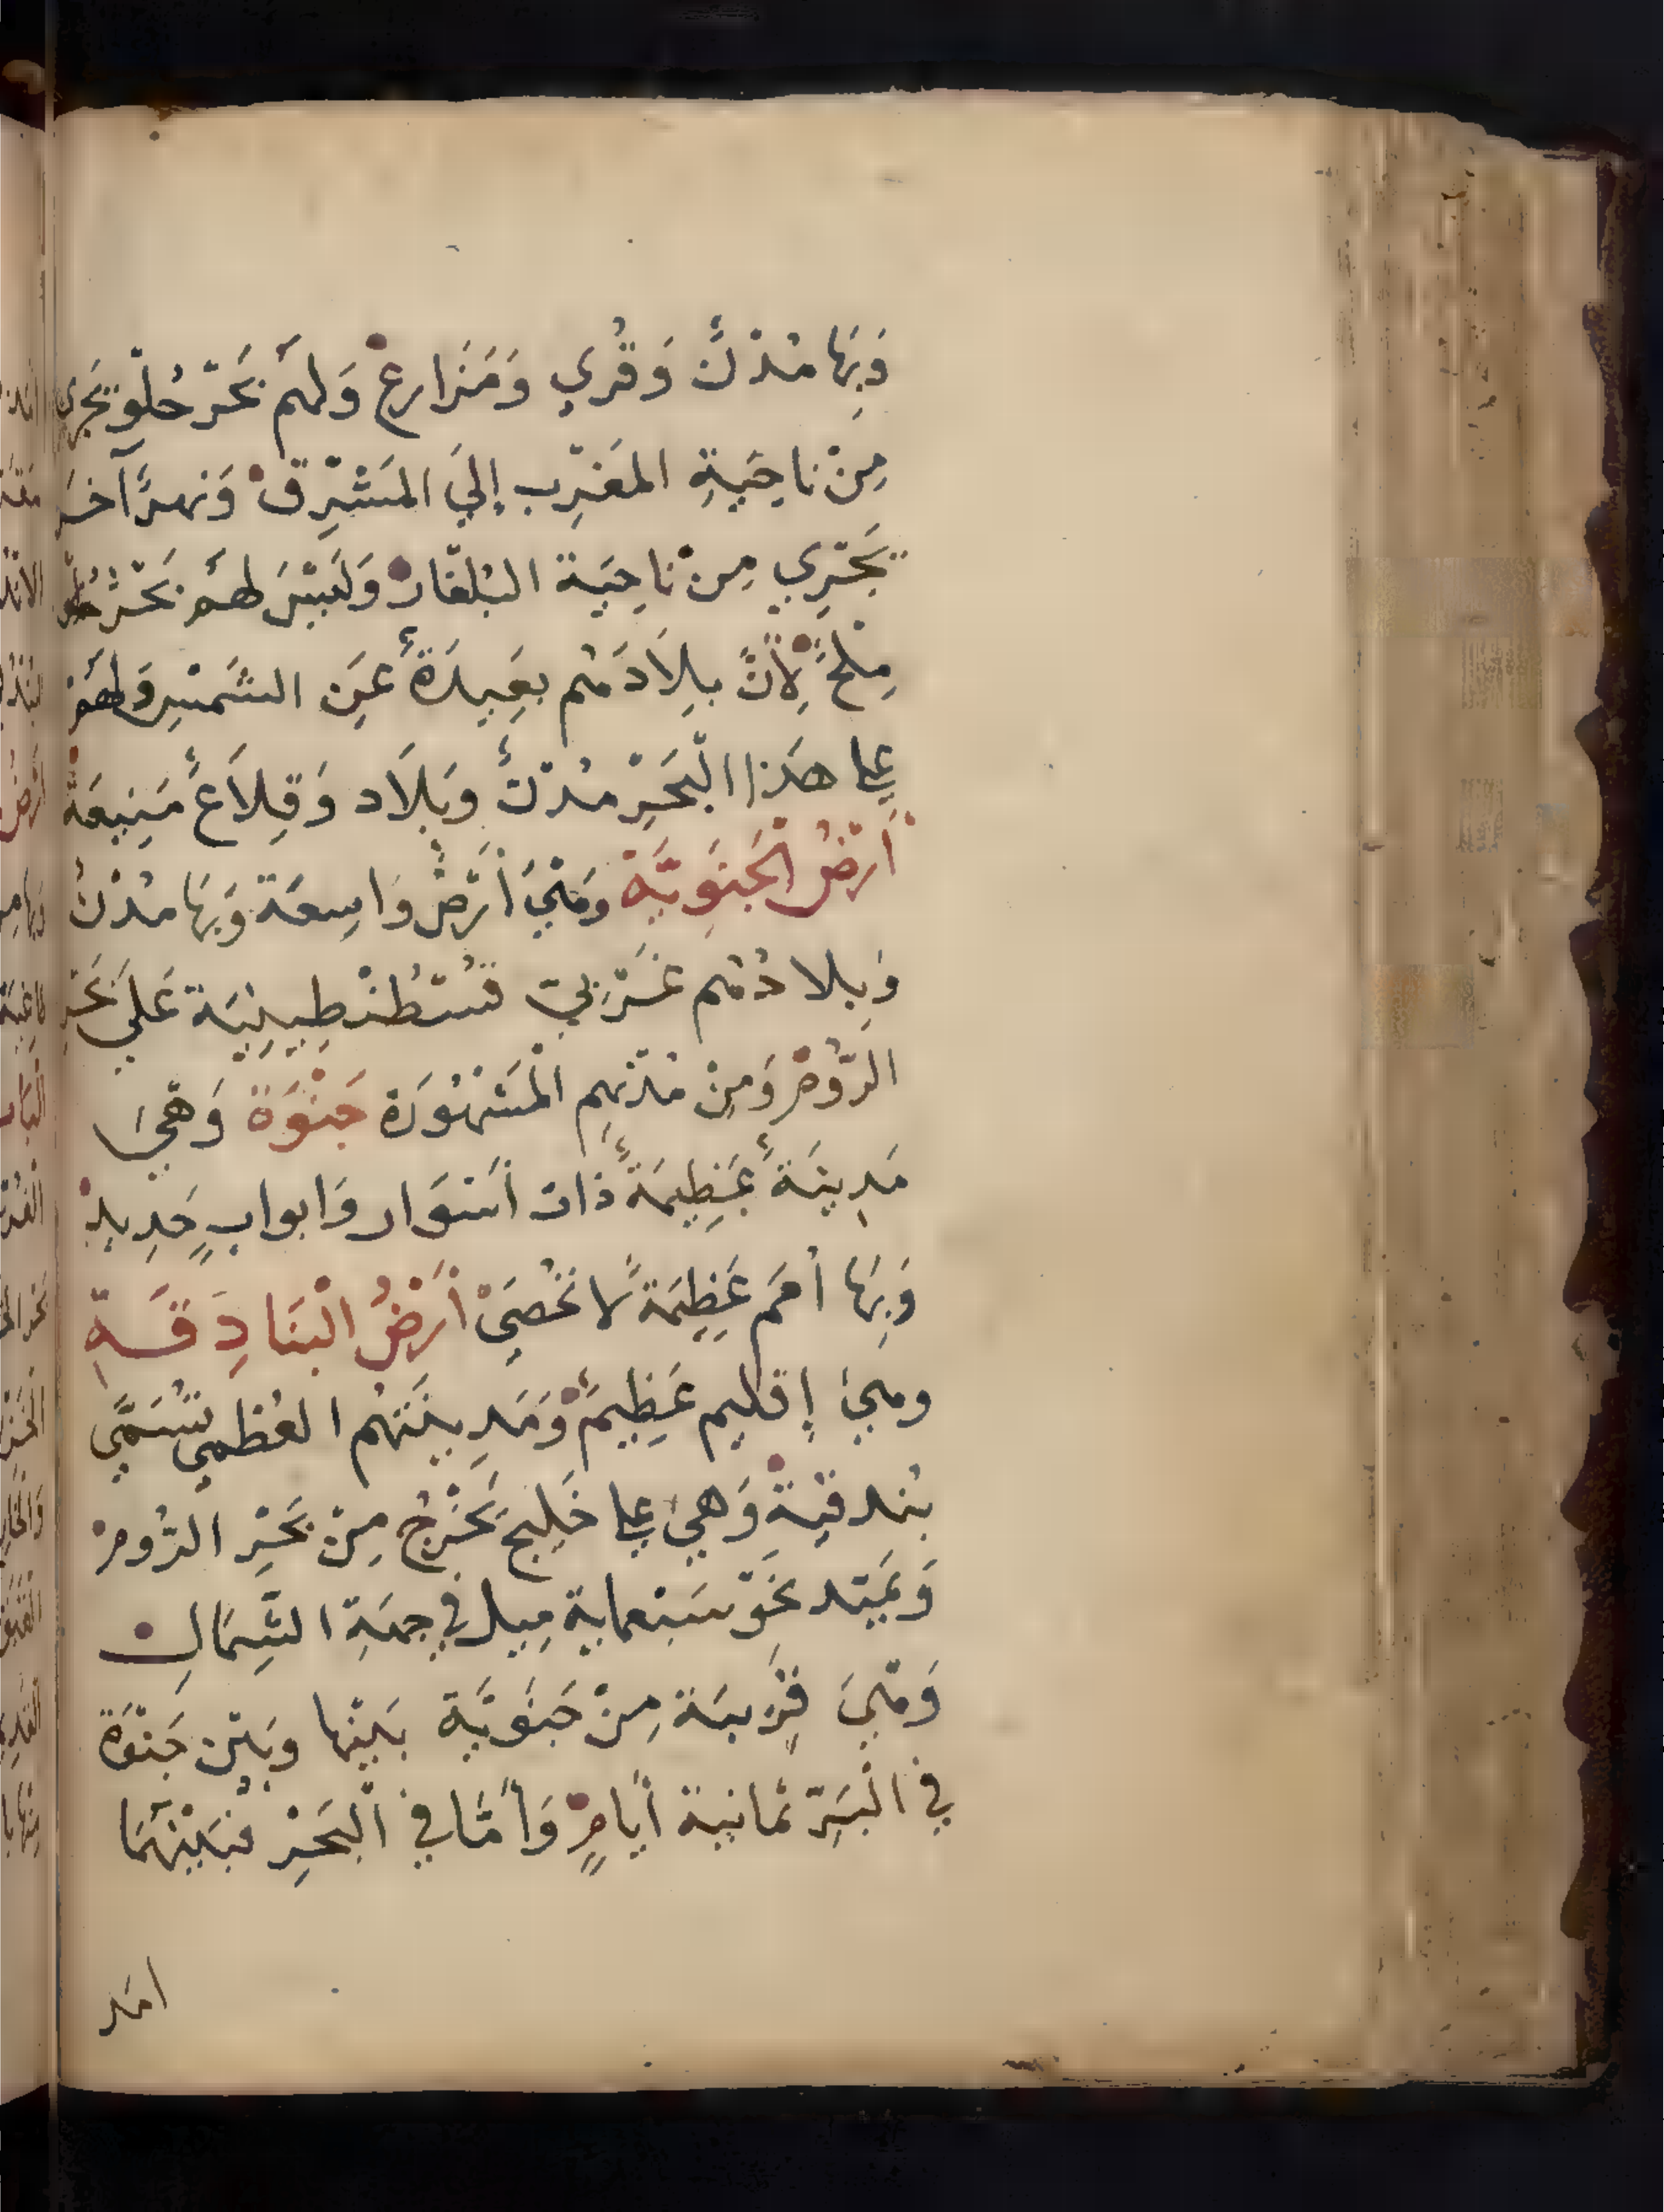 وَبِهَا مُدْنٌ وَقُرَي وَمَزَارِعْ وَلَهُم بَحْر حُلْو يَجْرِي
مِنْ نَاحِيَةِ المَغْرِب إِليَ المَشْرِقْ وَنهرًا آخَر
يَجْرِي مِنْ نَاحِيَة البُلْغَارْ وَلَيْسَ لهُم بَحْرٌ
مِلْحٌ لِأَنَّ بِلَادَهُم بَعِيدَةٌ عَن الشَمْسِ وَلَهُمْ
علي هَذا الْبَحَرْ مُدْنٌ وَبِلَاد وَقِلَاعٌ مَنِيعَةٌ
أَرْضُ الْجَنَوِيَّةْ وَهْيَ أَرْضٌ وَاسِعَة وَبِهَا مُدْنٌ
وَبِلادُهُم غَرْبيّ قسْطُنْطِينِيَة عَليَ بَحْرِ
الرُّومْ وَمِنْ مُدْنِهِم الْمَشْهُورَة جَنْوَة وَهْيَ
مَدِينَةٌ عَظِيمَةٌ ذات أَسْوَار وَابوابٍ حَدِيدْ
وَبِهَا أُمَم عَظِيمَةً لا تُحْصَيَ أَرْضُ الْبَنَادِقَةِ
وهيَ إِقليم عَظِيمٌ وَمَدِينَتَهُم العُظمي تُسَمَّي
بُندقيةْ وَهيَ علي خَلِيج يَخْرُجُ مِنْ بَحْرِ الرُّومْ
وَيَمْتد نحْو سَبْعماية مِيل في جِهَةِ الشِّمَالِ
وَهْيَ قَرِيبَة مِنْ جَنَوِيَّة بَيْنَها وَبَيْن جَنْوَة
في الْبَرِّ ثمانية أَيامٍ وَأَمَّا في الْبَحْرِ فَبَيْنَهُمَا
امد